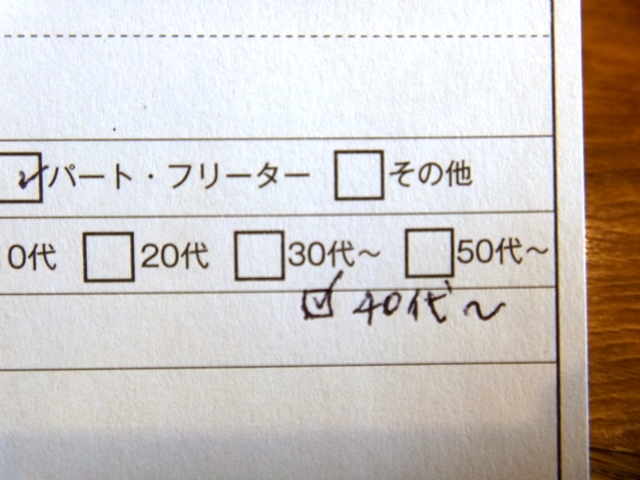 ☑パート・フリーター □その他
0代 □20代 □30代～ □50代～
☑40代～